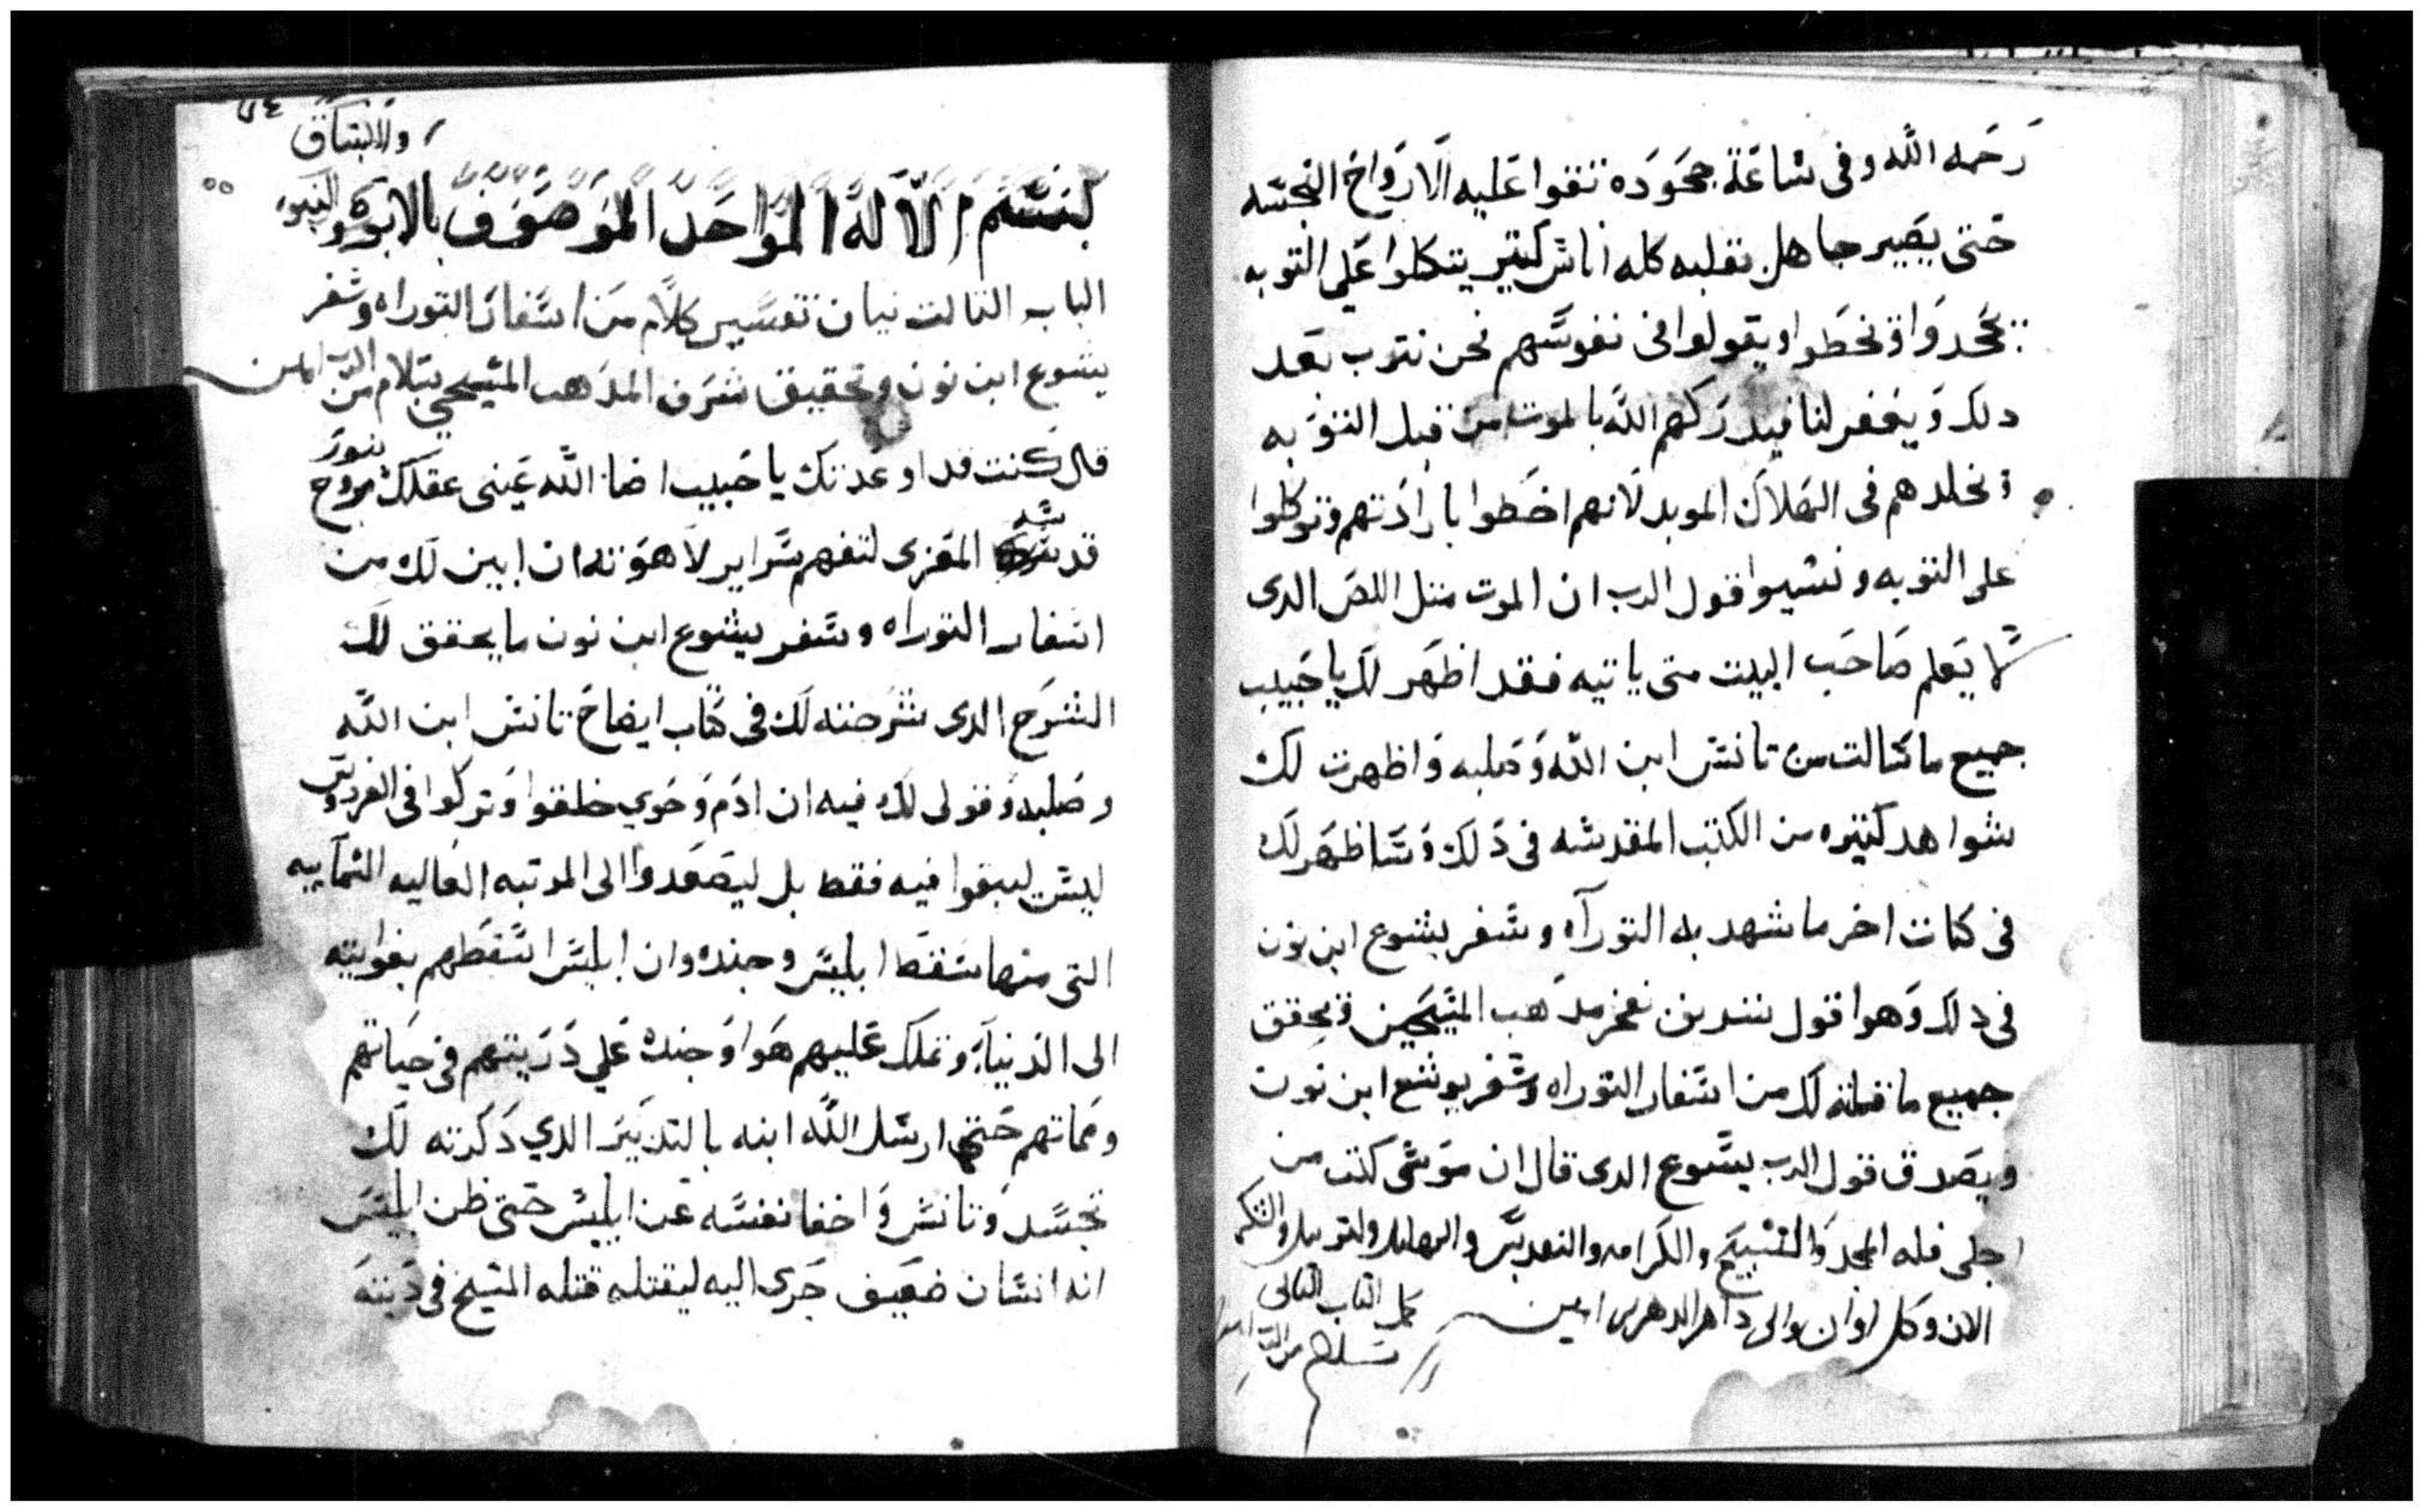 رحمه الله وفى ساعة جحوده تقوا عليه الارواح النجسه
حتى يصير جاهل بقلبه كله اناس كتير يتكلوا على التوبه
يجحدوا وتخطوا ويقولوا فى نفوسهم نحن نترب بعد
دلك ويغفر لنا فيدركهم الله بالموت من قبل التوبه
وتخلدهم فى الهلاك الموبد لانهم اخطوا بارادتهم وتوكلوا
على التوبه ونسيوا قول الرب ان الموت متل اللص الدى
لا يعلم صاحب البيت متى ياتيه فقد اظهر لك يا حبيب
جميع ما سالت من تانس ابن الله وصلبه واظهرت لك
شواهد كتيره من الكتب المقدسه فى دلك وساظهر لك
فى كتاب اخر ما شهد به التوراه وسفر يشوع ابن نون
فى دلك وهوا قول شريف مدهب المسيحين وتحقق
جميع ما قلته لك من اسفار التوراه وسفر يوشع ابن نون
ويصدق قول الرب يسوع الدى قال ان موسى كتب من
اجلى فله المجد والتسبيح والكرامه والتقديس والتهليل والترتيل والشكر
الان وكل اوان والى داهر الداهرين امين
كمل الباب التانى
بسلام من الرب امين
والانبتاق
بسم الاله الواحد الموصوف بالابوه والبنوه
الباب التالت بيان تفسير كلام من اسفار التوراه وسفر
يشوع ابن نون وتحقيق شرف المدهب المسيحي بسلام من الرب امين
قال كنت قد اوعدتك يا حبيب اضا الله عينى عقلك بنور روح
قدسه المعزى لتفهم سراير لاهوته ان ابين لك من
اسفار التوراه وسفر يشوع ابن نون ما يحقق لك
الشرح الدى شرحته لك فى كتاب ايضاح تانس ابن الله
وصلبه وقولى لك فيه ان ادم وحوي خلقوا وتركوا فى الفردوس
ليس ليبقوا فيه فقط بل ليصعدوا الى المرتبه العاليه السماييه
التى منها سقط ابليس وجنده وان ابليس اسقطهم بغوايته
الى الدنيا وتملك عليهم هوا وجنده علي دريتهم فى حياتهم
ومماتهم حتى ارسل الله ابنه بالتدبير الدي دكرته لك
تجسد وتانس واخفا نفسه عن ابليس حتى ظن ابليس
انه انسان ضعيف جرى اليه ليقتله قتله المسيح فى